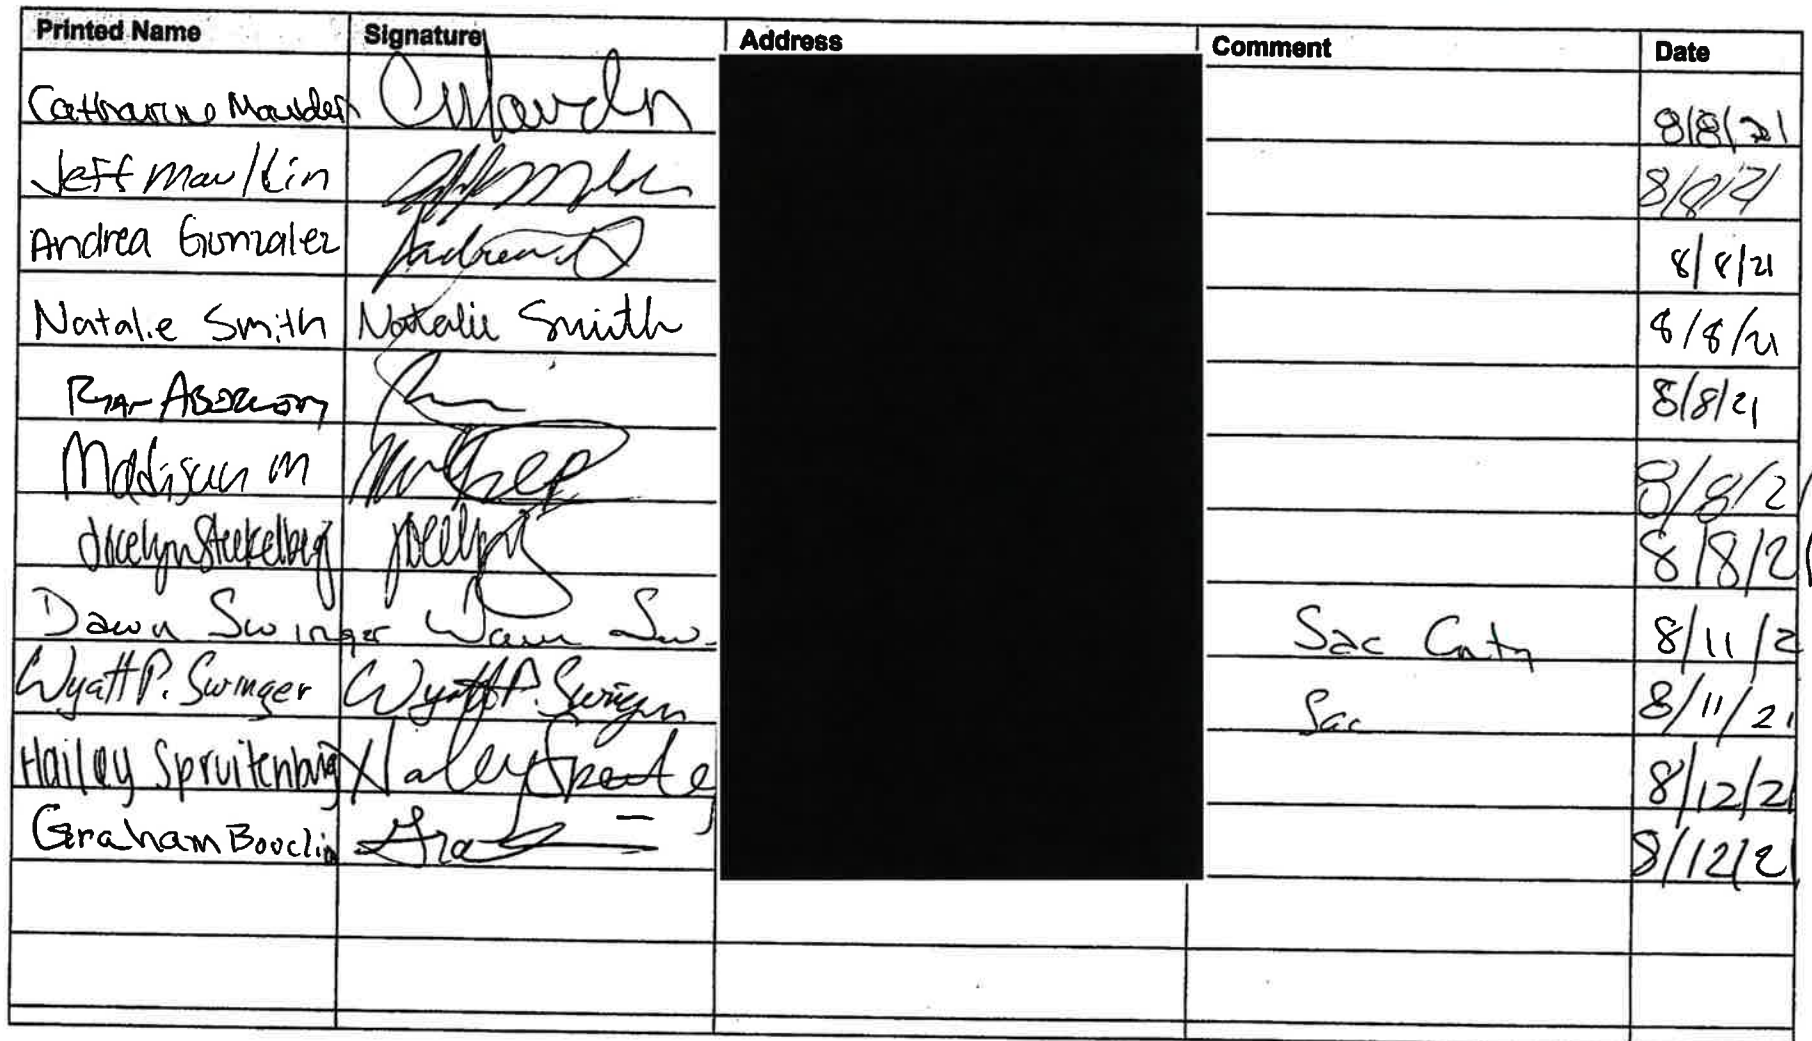 Printed Name Signature Address Comment Date
Catharine Maulden 8/8/21
Jeff Mauldin 8/8/21
Andrea Gonzalez 8/8/21
Natalie Smith Natalie Smith 8/8/21
Ryan 8/8/21
Madison M 8/8/21
Jocelyn Steckelberg Jocelyn 8/8/21
Dawn Swinger Dawn Sw. Sac Cnty 8/11/2
Wyatt P. Swinger Wyatt P. Swinger Sac 8/11/21
Hailey Spruitenburg 8/12/21
Graham Bouclin 8/12/21